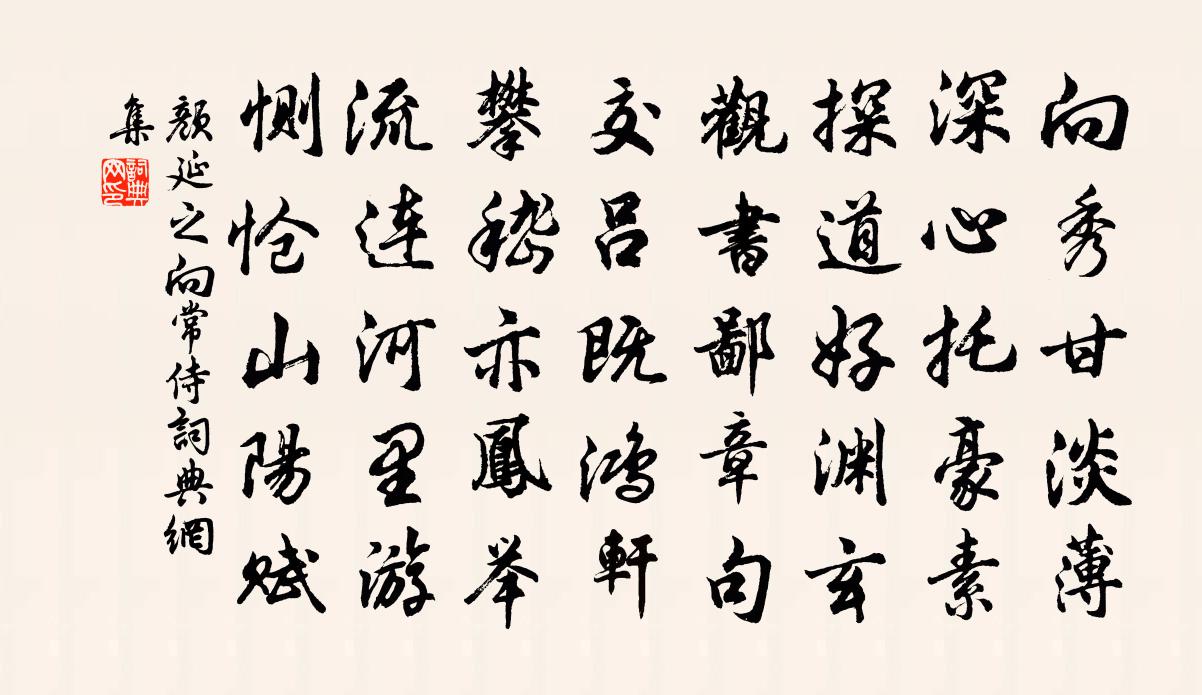 向秀甘淡薄
深心托豪素
探道好渊玄
觀書鄙章句
交吕既鸿軒
攀嵇亦鳳举
流连河里游
恻怆山陽赋
顏延之向常侍詞典網
集
詞典網印